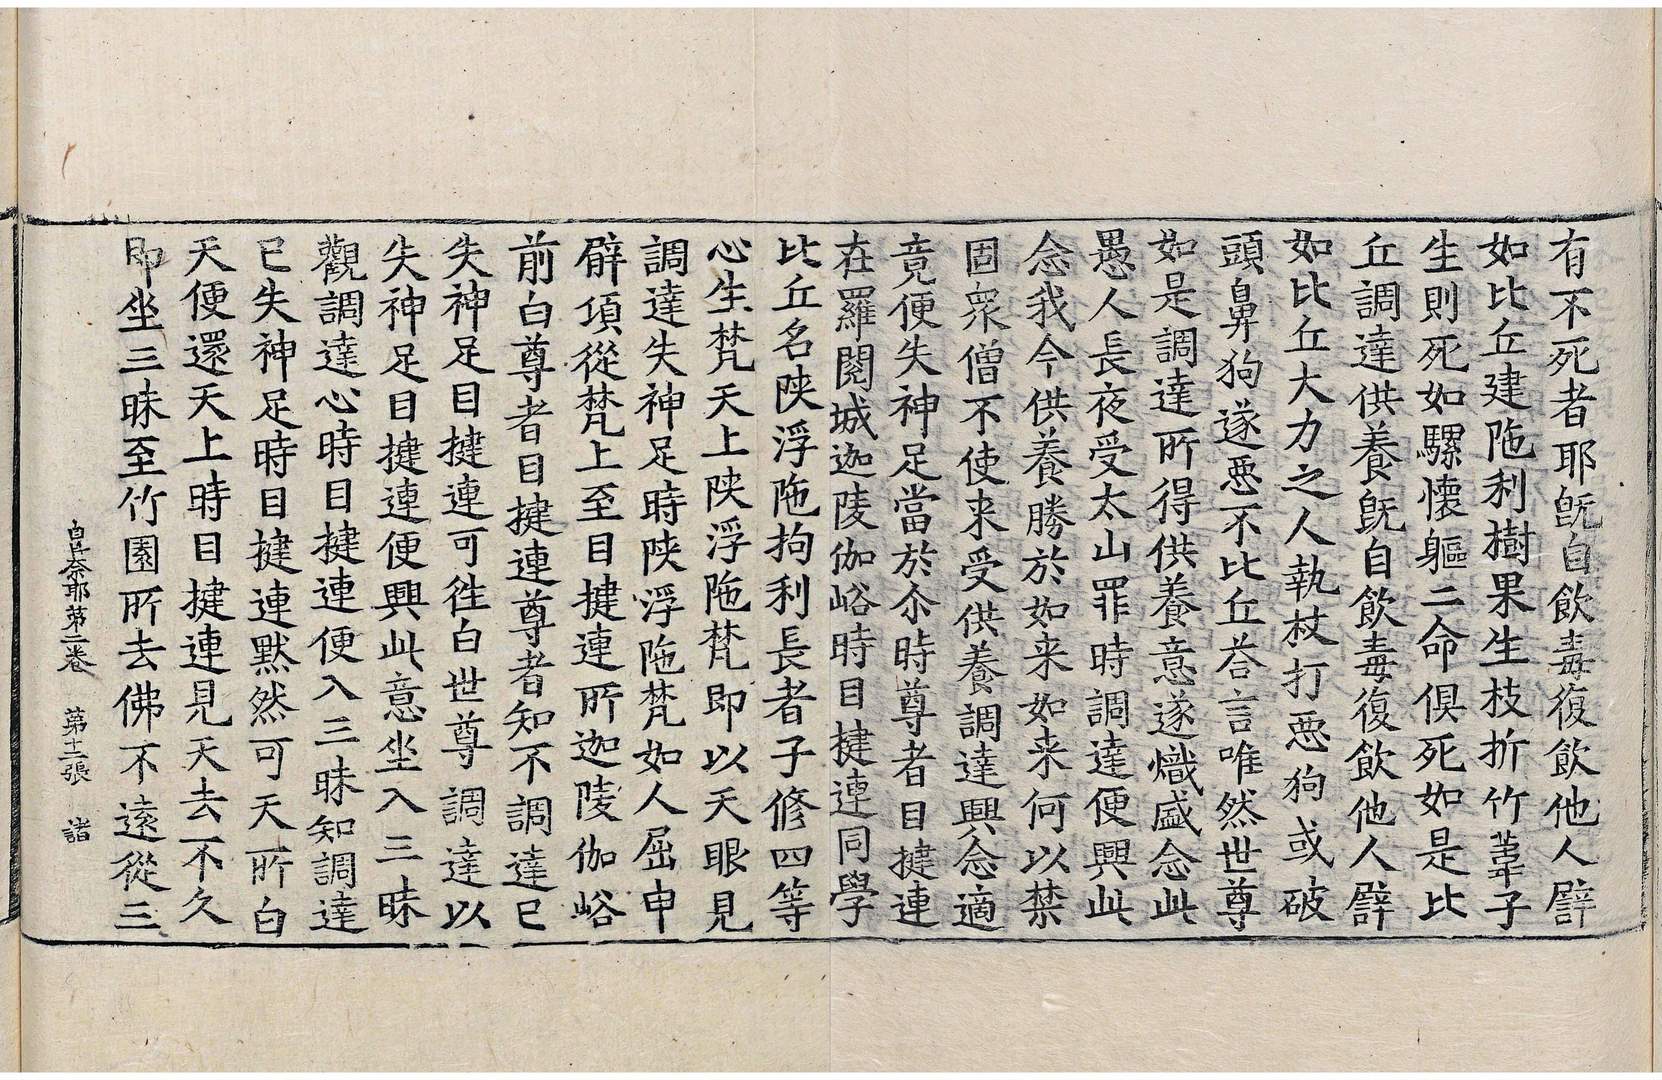 有不死者耶既自飲毒復飲他人譬
如比丘建陁利樹果生枝折竹葦子
生則死如騾懷軀二命俱死如是比
丘調達供養既自飲毒復飲他人譬
如比丘大力之人執杖打惡狗或破
頭鼻狗遂惡不比丘荅言唯然世尊
如是調達所得供養意遂熾盛念此
愚人長夜受太山罪時調達便興此
念我今供養勝於如来如来何以禁
固衆僧不使来受供養調達興念適
竟便失神足當於尒時尊者目揵連
在羅閱城迦陵伽峪時目揵連同學
比丘名陜浮陁拘利長者子修四等
心生梵天上陜浮陁梵即以天眼見
調達失神足時陜浮陁梵如人屈申
臂項從梵上至目揵連所迦陵伽峪
前白尊者目揵連尊者知不調達已
失神足目揵連可徃白世尊調達以
失神足目揵連便興此意坐入三昧
觀調達心時目揵連便入三昧知調達
已失神足時目揵連默然可天所白
天便還天上時目揵連見天去不久
即坐三昧至竹園所去佛不遠從三
鼻奈耶第二卷 第十二張 諸